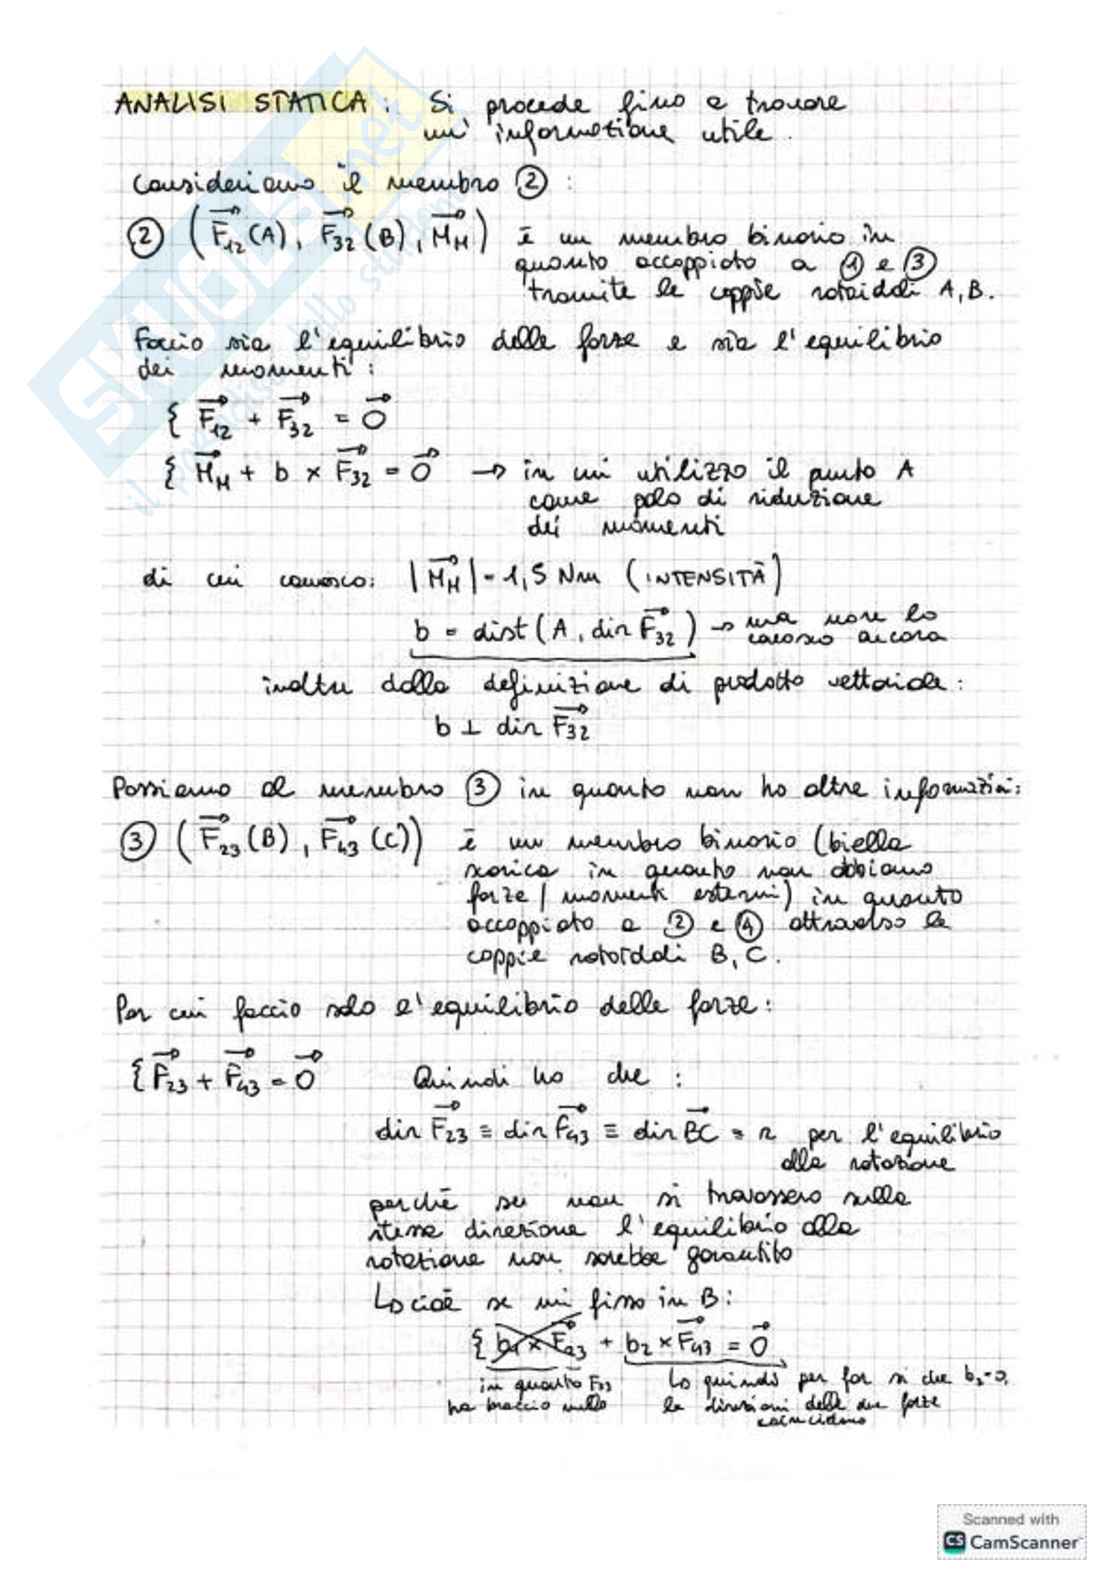 ANALISI STATICA: Si procede fino a trovare
un'informazione utile.
Consideriamo il membro ②:
② (F₁₂(A), F₃₂(B), M_M) è un membro binario in
quanto accoppiato a ① e ③
tramite le coppie rotoidali A, B.
Faccio sia l'equilibrio delle forze e sia l'equilibrio
dei momenti:
{ F₁₂ + F₃₂ = 0
{ M_M + b × F₃₂ = 0 → in cui utilizzo il punto A
come polo di riduzione
dei momenti
di cui conosco: |M_M| = 1,5 Nm (INTENSITÀ)
b = dist (A, dir F₃₂) → ma non lo
conosco ancora
inoltre dalla definizione di prodotto vettoriale:
b ⊥ dir F₃₂
Passiamo al membro ③ in quanto non ho altre informazioni:
③ (F₂₃(B), F₄₃(C)) è un membro binario (biella
scarica in quanto non abbiamo
forze/momenti esterni) in quanto
accoppiato a ② e ④ attraverso le
coppie rotoidali B, C.
Per cui faccio solo l'equilibrio delle forze:
{ F₂₃ + F₄₃ = 0 Quindi ho che:
dir F₂₃ ≡ dir F₄₃ ≡ dir BC = r per l'equilibrio
alla rotazione
perchè se non si trovassero sulla
stessa direzione l'equilibrio alla
rotazione non sarebbe garantito
↳ cioè se mi fisso in B:
{ b₁ × F₂₃ + b₂ × F₄₃ = 0
in quanto F₂₃ ↳ quindi per far si che b₂=0,
ha braccio nullo le direzioni delle due forze
coincidono
SKUOLA.net
il paradiso dello studente
Scanned with
CS CamScanner